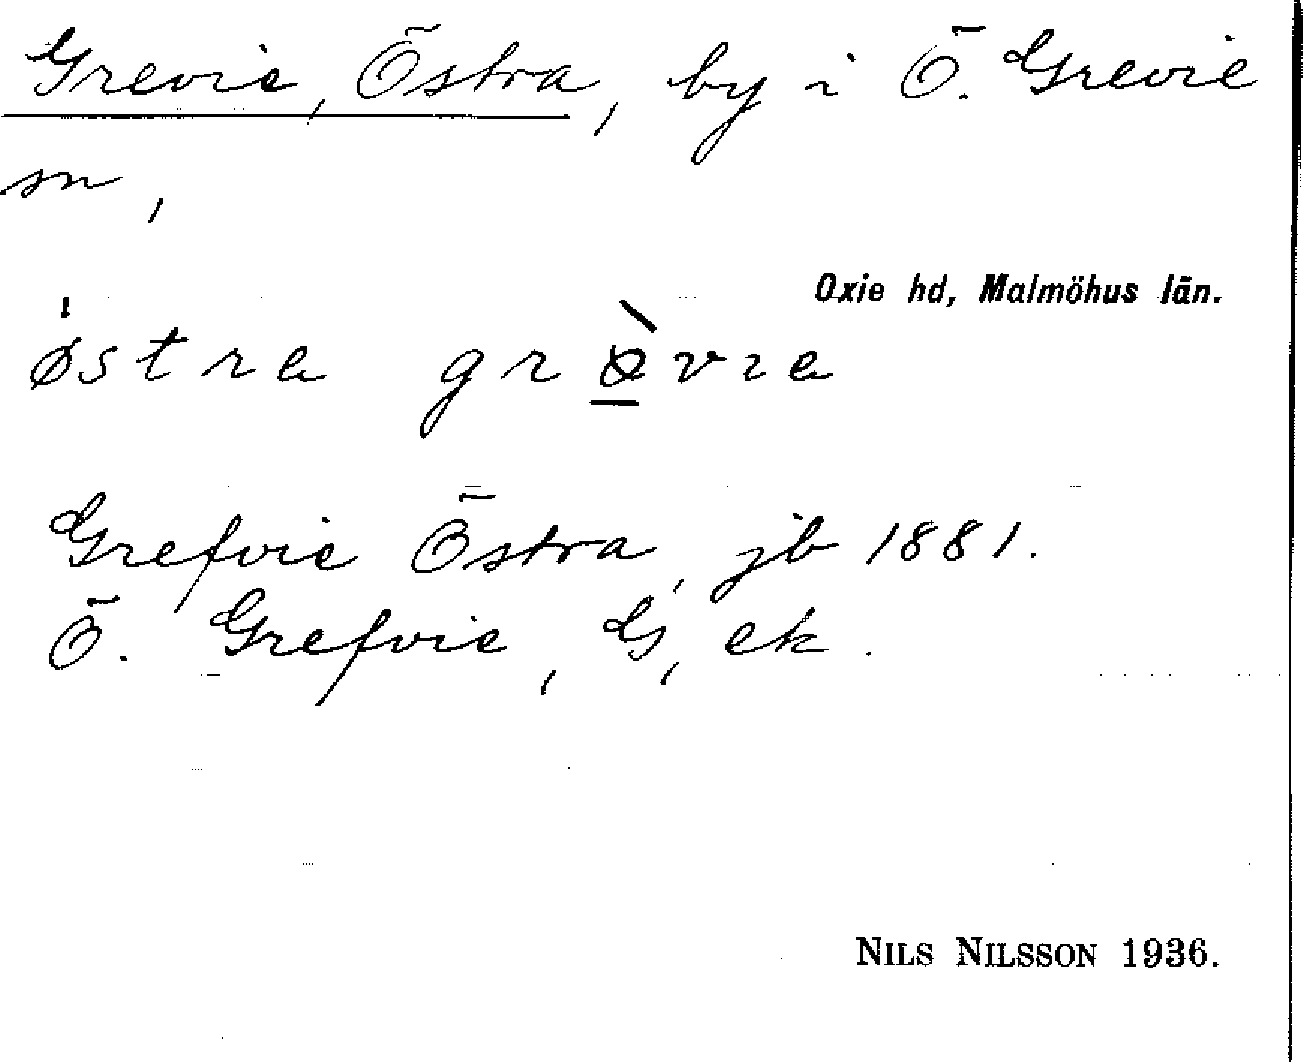 Grevie, Östra, by i Ö. Grevie
sn,
Oxie hd, Malmöhus län.
østra
Grefvie Östra, jb 1881.
Ö. Grefvie, G, ek.
NILS NILSSON 1936.